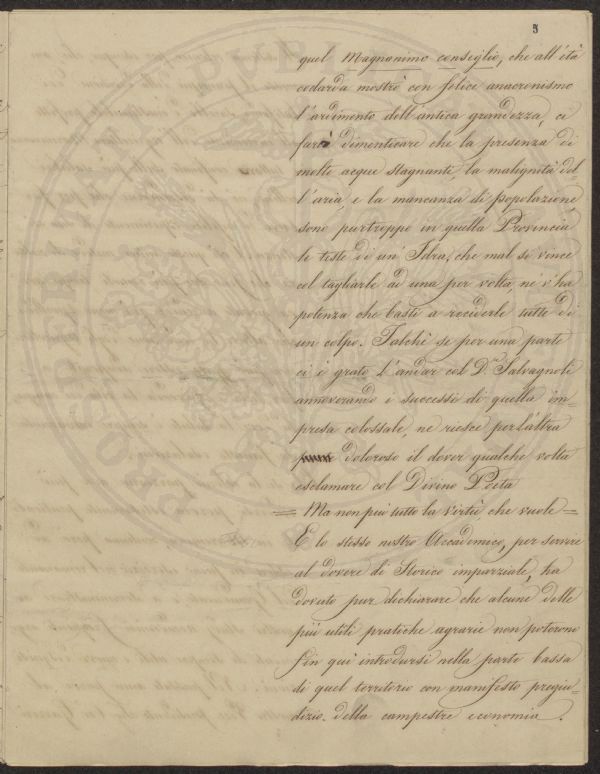 5
quel Magnanimo consiglio, che all'età
codarda mostrò con felice anacronismo
l'ardimento dell'antica grandezza, ci
farà dimenticare che la presenza di
molte acque stagnanti, la malignità del
l'aria, e la mancanza di popolazione
sono purtroppo in quella Provincia
le teste di un'Idra, che mal si vince
col tagliarle ad una per volta, nè v'ha
potenza che basti a reciderle tutte di
un colpo. Talchè se per una parte
ci è grato l'andar col D.r Salvagnoli
annoverando i successi di quella im=
presa colossale, ne riesce per l'altra
doloroso il dover qualche volta
esclamare col Divino Poeta
= Ma non può tutto la virtù, che vuole =
E lo stesso nostro Accademico, per servire
al dovere di Storico imparziale, ha
dovuto pur dichiarare che alcune delle
più utili pratiche agrarie non poterono
fin quì introdursi nella parte bassa
di quel territorio con manifesto pregiu=
dizio della campestre economia.